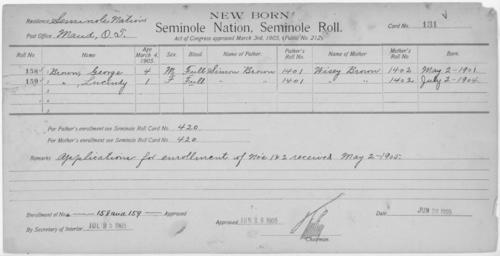 NEW BORN
Residence, Seminole Nation
Seminole Nation, Seminole Roll.
Card No. 131
Post Office, Maud, O.T.
Act of Congress approved March 3rd, 1905, (Public No. 212)
Roll No. Name Age March 4, 1905 Sex. Blood. Name of Father. Father's Roll No. Name of Mother. Mother's Roll No. Born.
158 Brown, George 4 M Full Simon Brown 1401 Wisey Brown 1402 May 2-1901.
159 " , 1 F Full " " 1401 " " 1402 July 2-1904.
For Father's enrollment see Seminole Roll Card No. 420
For Mother's enrollment see Seminole Roll Card No. 420
Remarks Application for enrollment of Nos 1&2 received May 2-1905.
Enrollment of Nos 158 and 159 Approved
By Secretary of Interior 1905
Approved 1905
Chairman.
Date JUN 1905